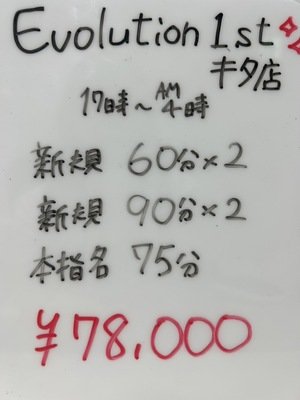 Evolution 1st
キタ店
17時～AM4時
新規 60分×2
新規 90分×2
本指名 75分
¥78,000